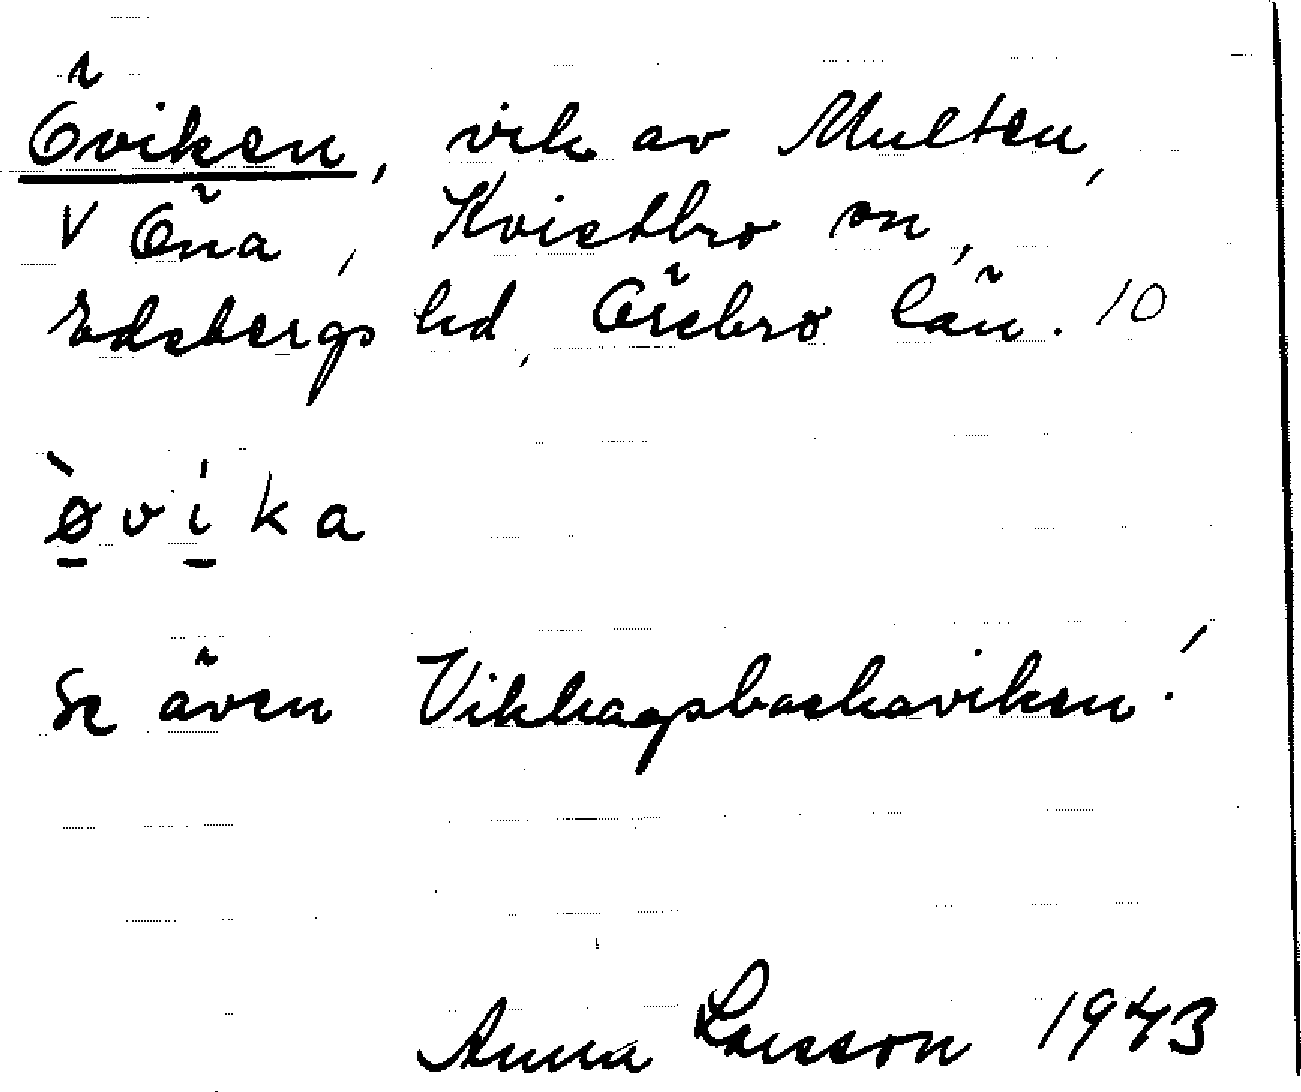 Öviken, vik av Multen,
V Öna, Kvistbro sn,
Edsbergs hd, Örebro län. 10
ø̀víka
Se även Vikhagsbackaviken!
Anna Larsson 1943